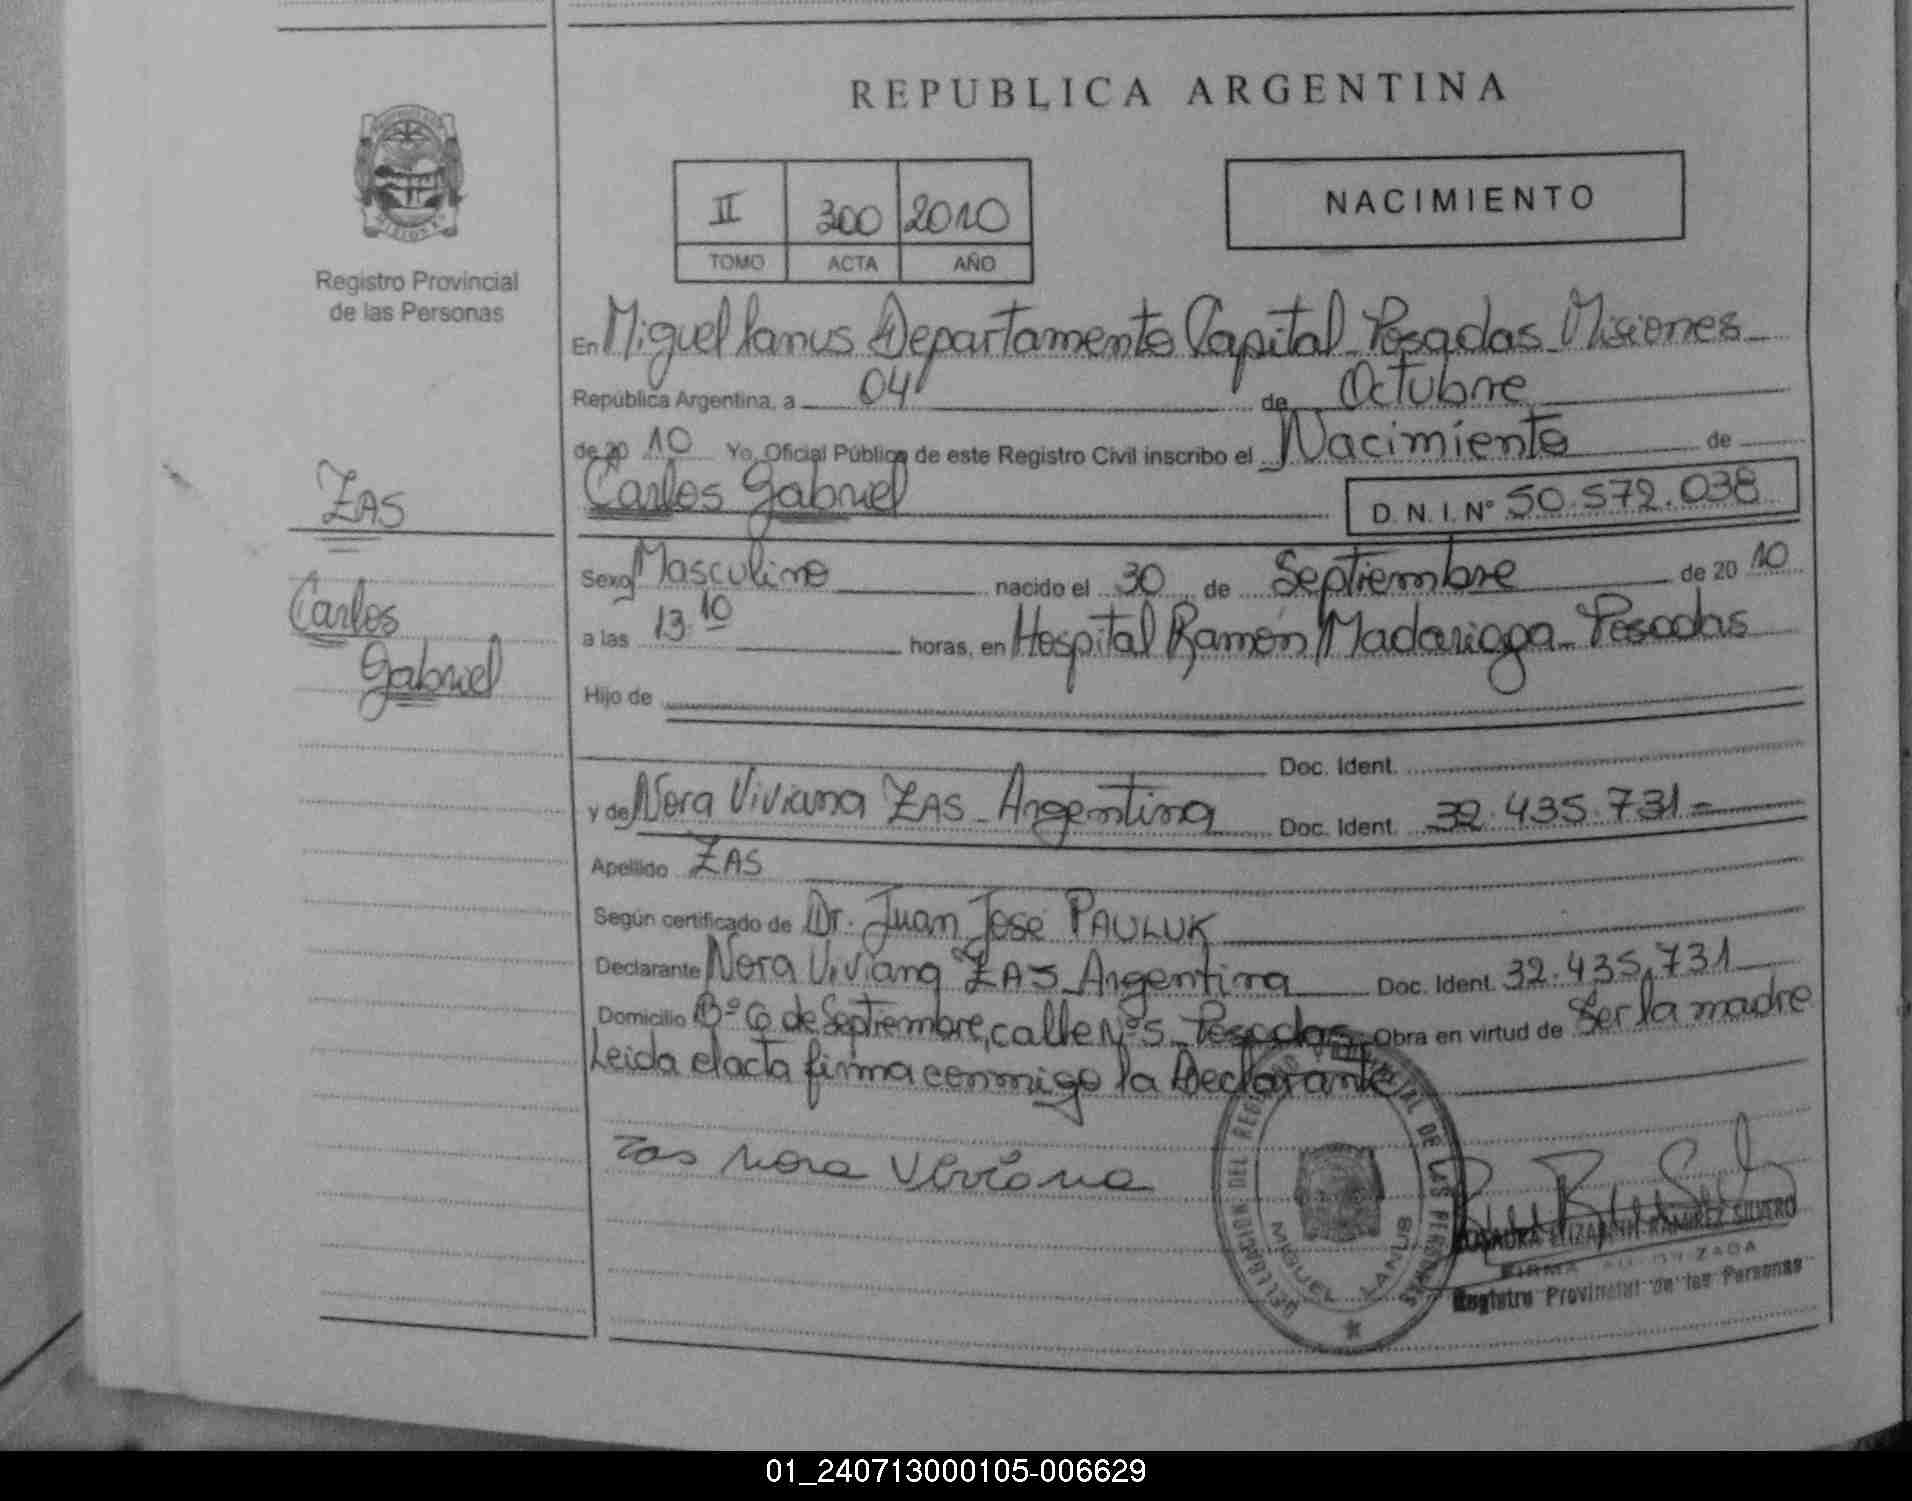 REPUBLICA ARGENTINA
II 300 2010
TOMO ACTA AÑO
NACIMIENTO
Registro Provincial
de las Personas
ZAS
Carlos
Gabriel
En Miguel Lanus Departamento Capital - Posadas - Misiones
República Argentina, a 04 de Octubre
de 20 10 Yo, Oficial Público de este Registro Civil inscribo el Nacimiento de
Carlos Gabriel D. N. I. Nº 50.572.038
Sexo Masculino nacido el 30 de Septiembre de 20 10
a las 13:10 horas, en Hospital Ramón Madariaga - Posadas
Hijo de
Doc. Ident.
y de Nora Viviana ZAS - Argentina Doc. Ident. 32.435.731=
Apellido ZAS
Según certificado de Dr. Juan José PAULUK
Declarante Nora Viviana ZAS - Argentina Doc. Ident. 32.435.731
Domicilio Bº 6 de Septiembre, calle Nº 5 - Posadas - Obra en virtud de Ser la madre
Leida el acta firma conmigo la Declarante
Zas Nora Viviana
DELEGACION DEL REGISTRO PROVINCIAL DE LAS PERSONAS
MIGUEL LANUS
ELIZABETH RAMIREZ SILVERO
FIRMA AUTORIZADA
Registro Provincial de las Personas
01_240713000105-006629